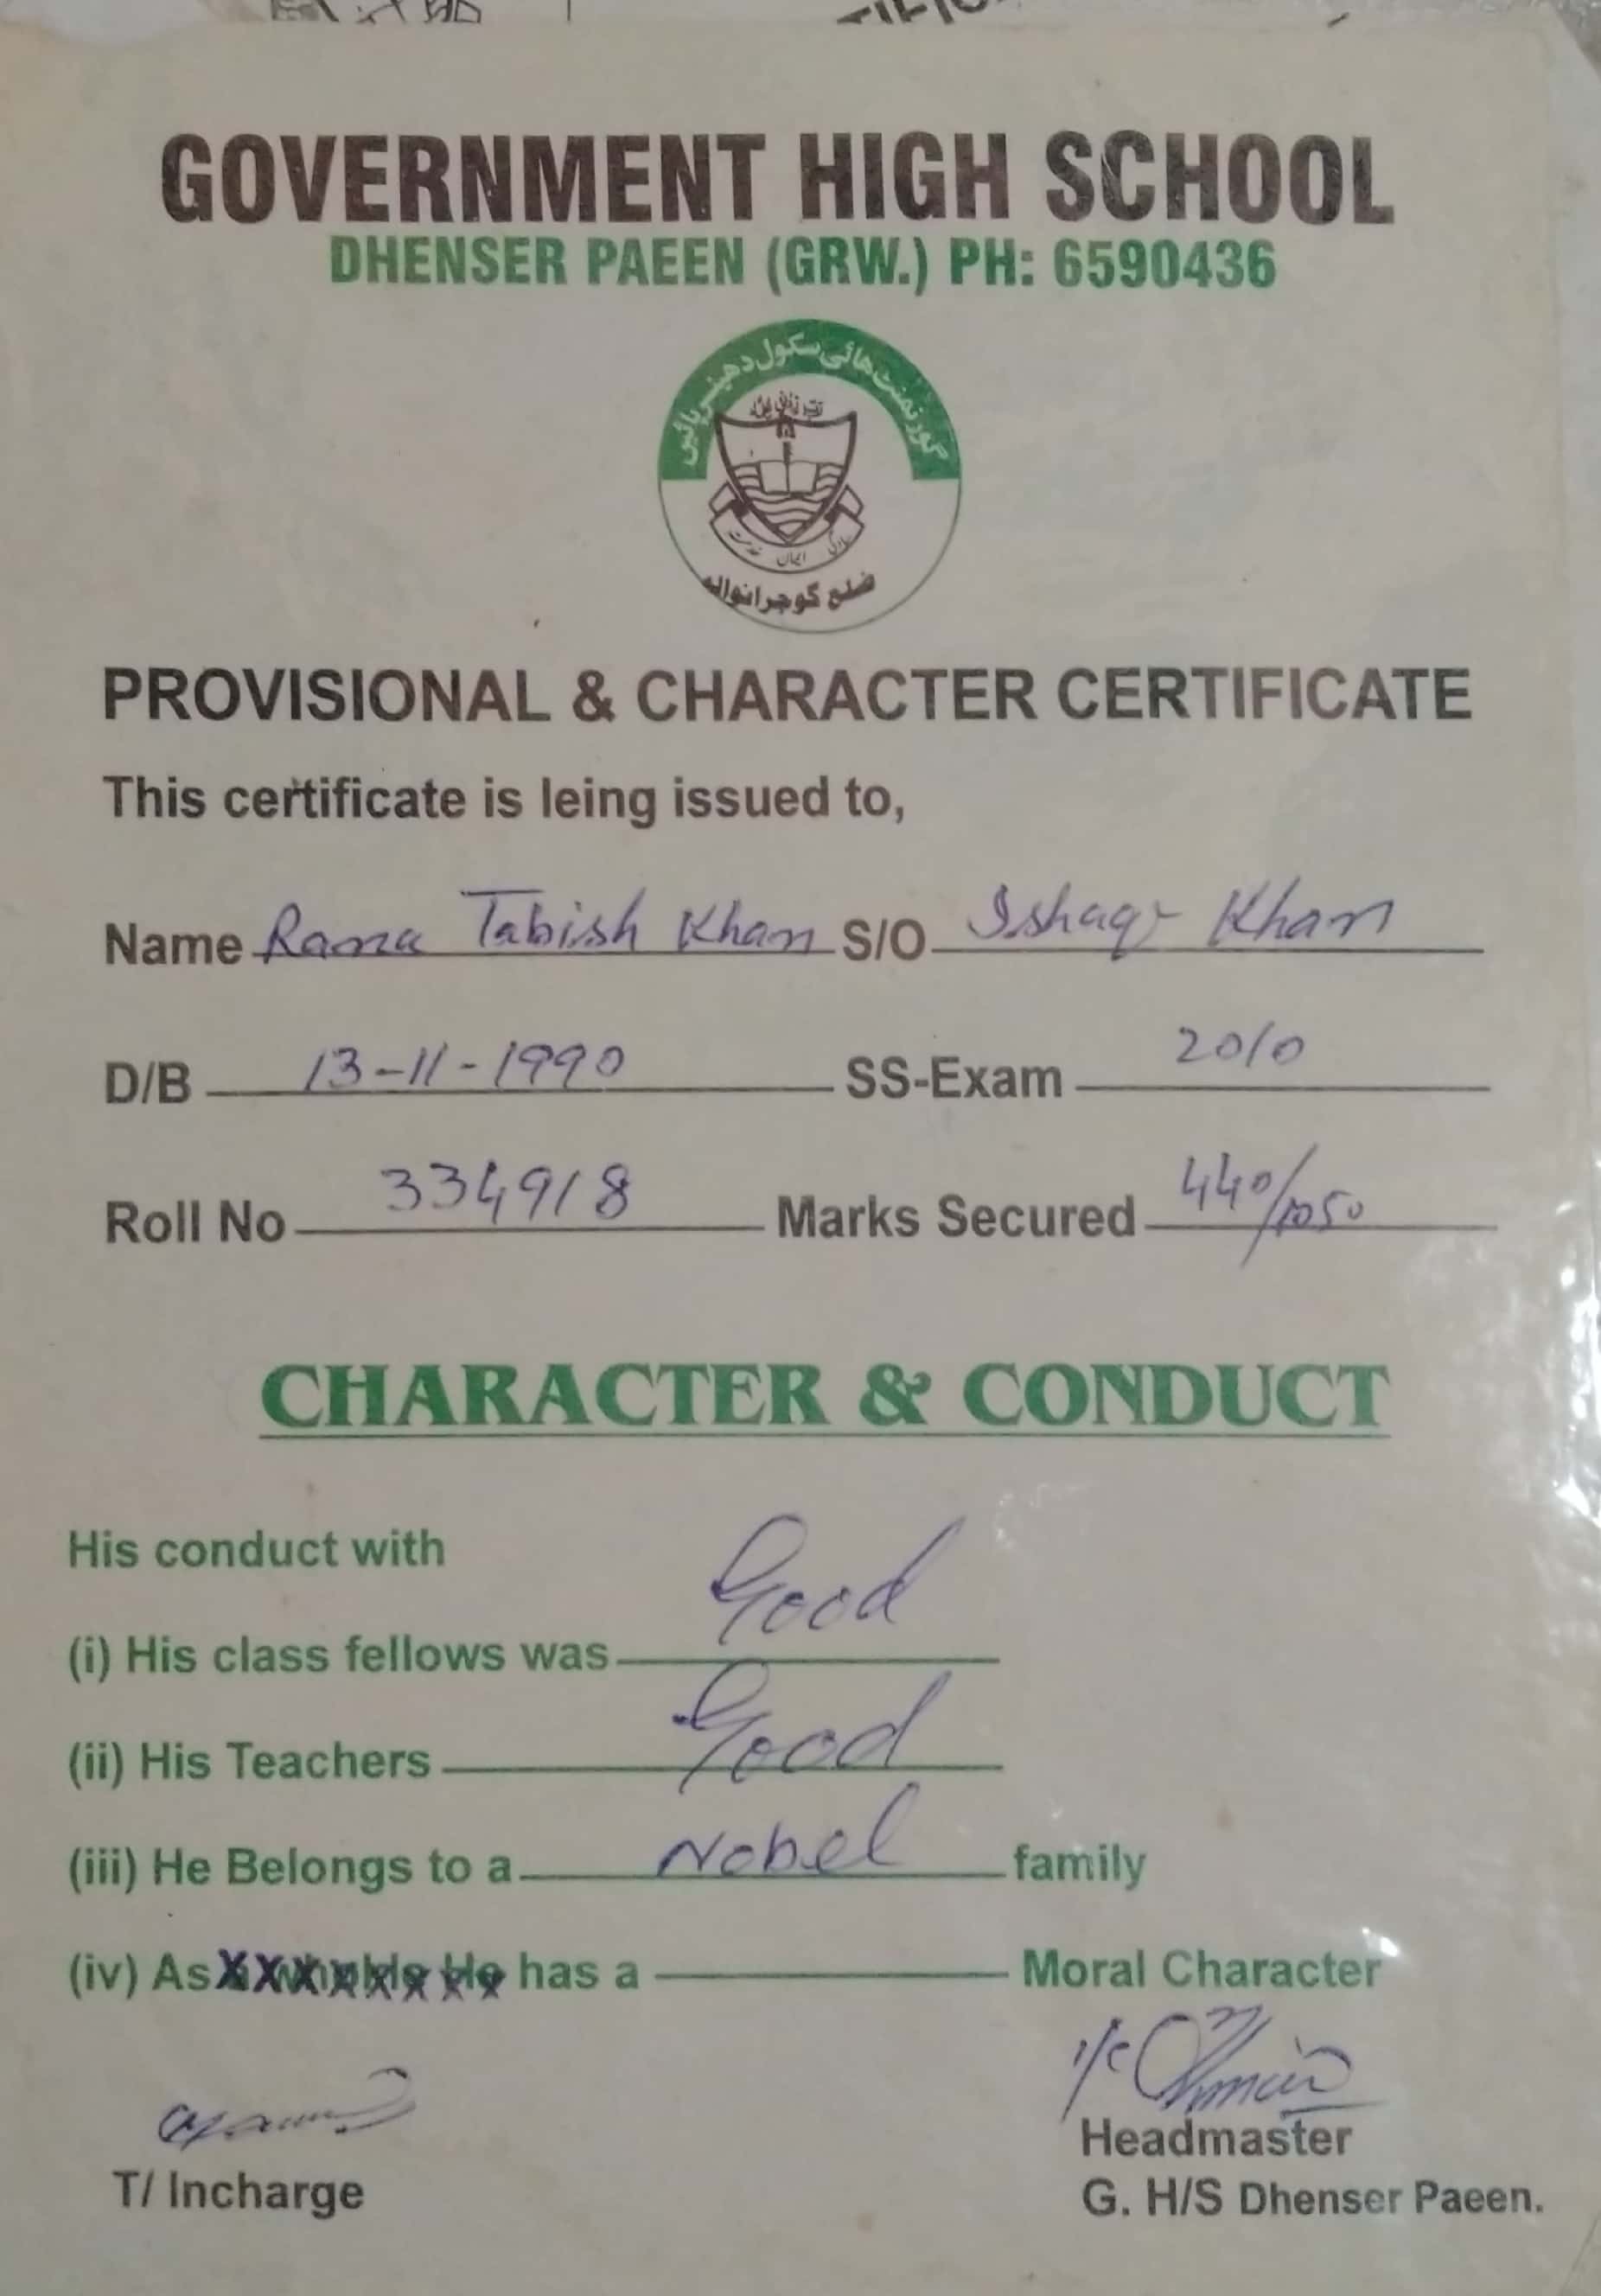 GOVERNMENT HIGH SCHOOL
DHENSER PAEEN (GRW.) PH: 6590436
گورنمنٹ ھائی سکول دھینسر پائیں
خدمت ایمان
ضلع گوجرانوالہ
PROVISIONAL & CHARACTER CERTIFICATE
This certificate is leing issued to,
Name Rana Tabish Khan S/O Ishaq Khan
D/B 13-11-1990 SS-Exam 2010
Roll No 334918 Marks Secured 440/1050
CHARACTER & CONDUCT
His conduct with
(i) His class fellows was Good
(ii) His Teachers Good
(iii) He Belongs to a Nobel family
(iv) As a whole He has a Moral Character
I/C
T/ Incharge
Headmaster
G. H/S Dhenser Paeen.